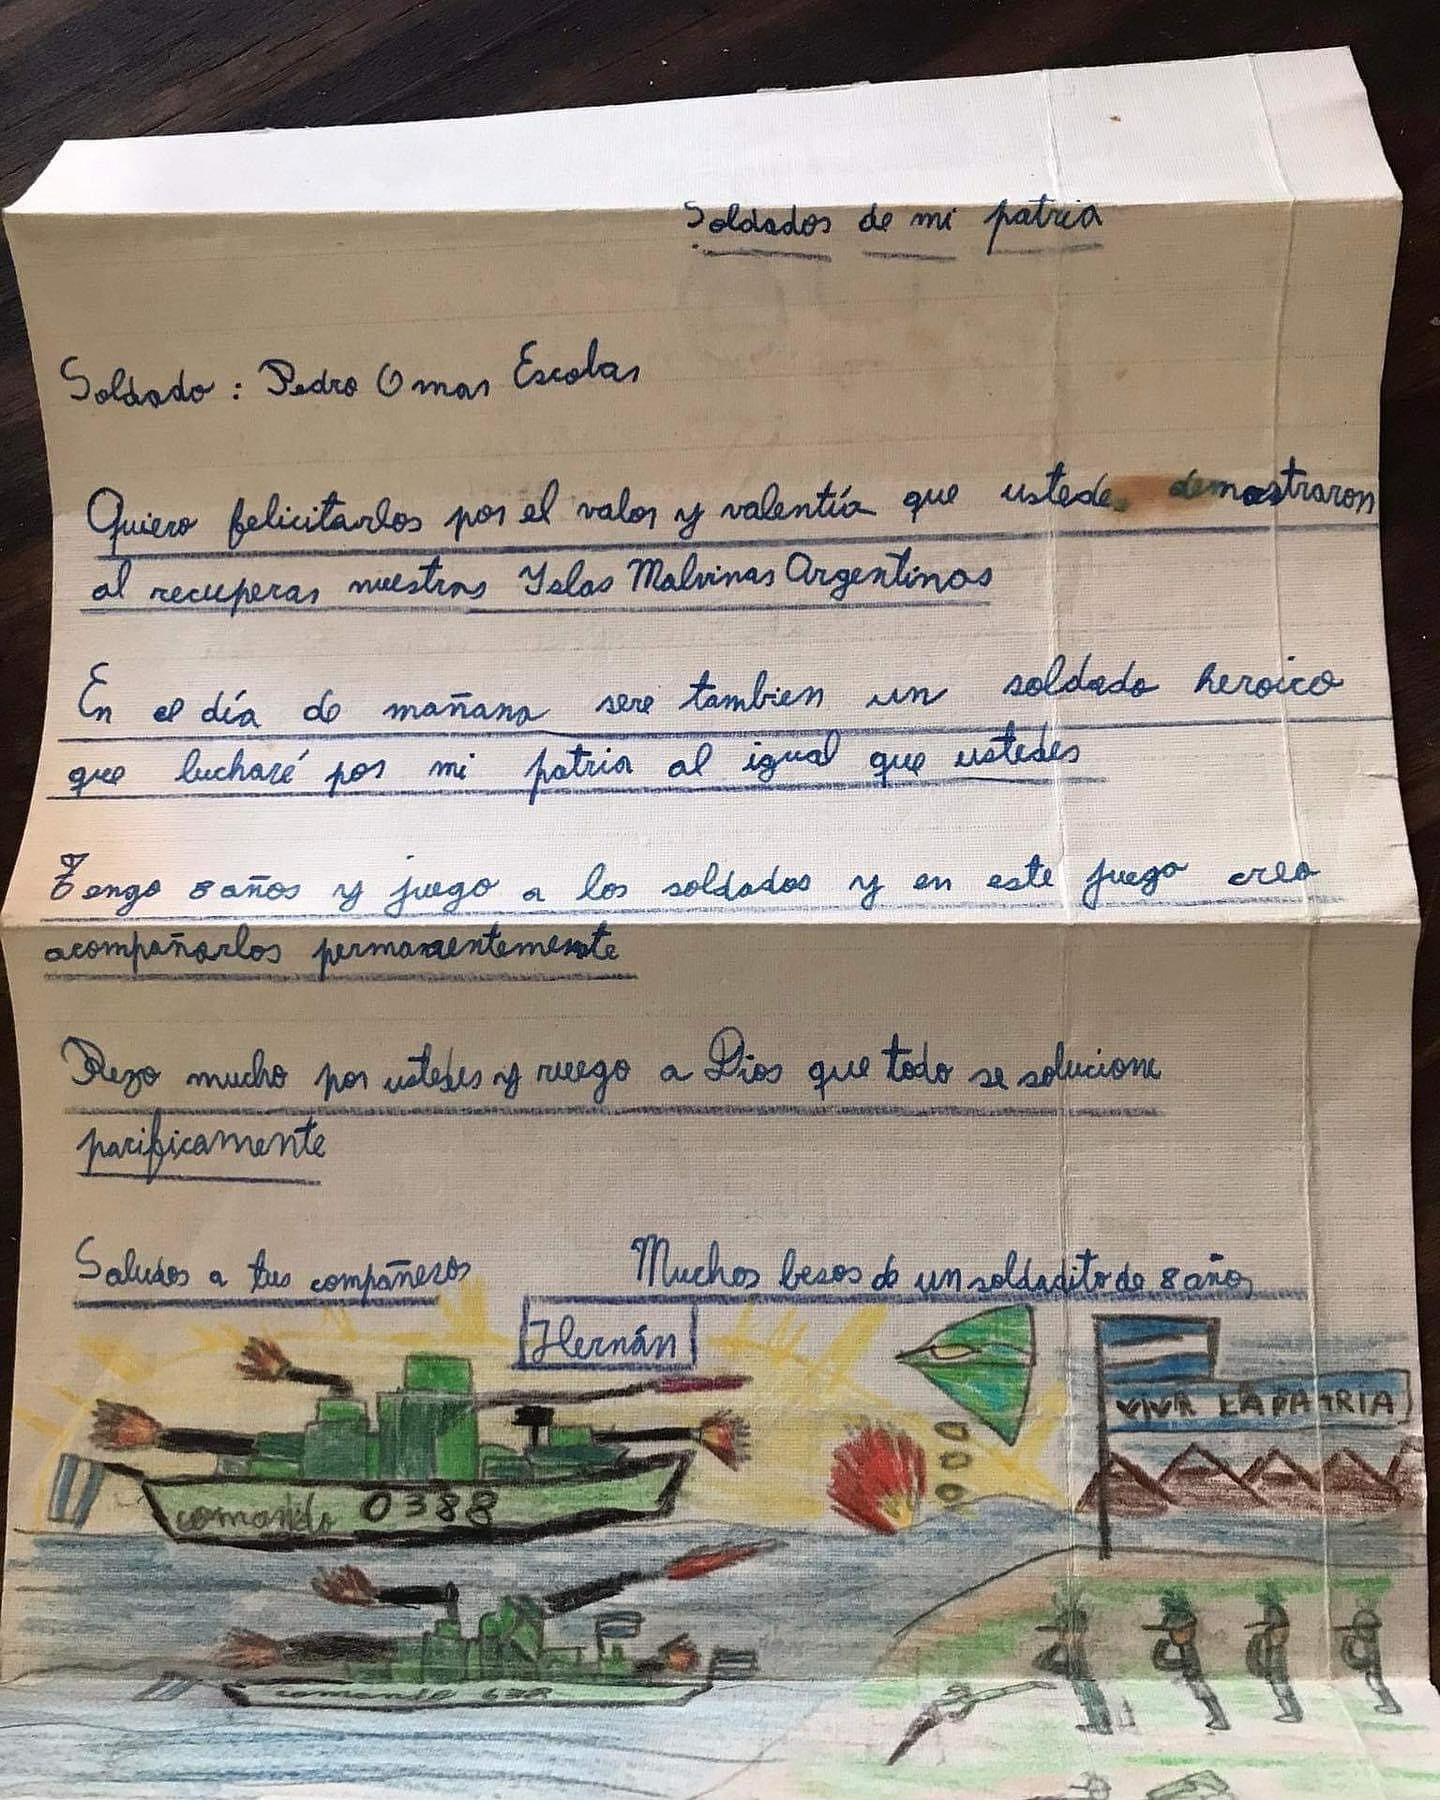 Soldados de mi patria
Soldado: Pedro Omar Escobar
Quiero felicitarlos por el valor y valentía que ustedes demostraron
al recuperar nuestras Yslas Malvinas Argentinas
En el día de mañana sere tambien un soldado heroico
que lucharé por mi patria al igual que ustedes
Tengo 8 años y juego a los soldados y en este juego creo
acompañarlos permanentemente
Rezo mucho por ustedes y ruego a Dios que todo se solucione
pacificamente
Saludos a tus compañeros Muchos besos de un soldadito de 8 años
Hernán
VIVA LA PATRIA
comando 0388